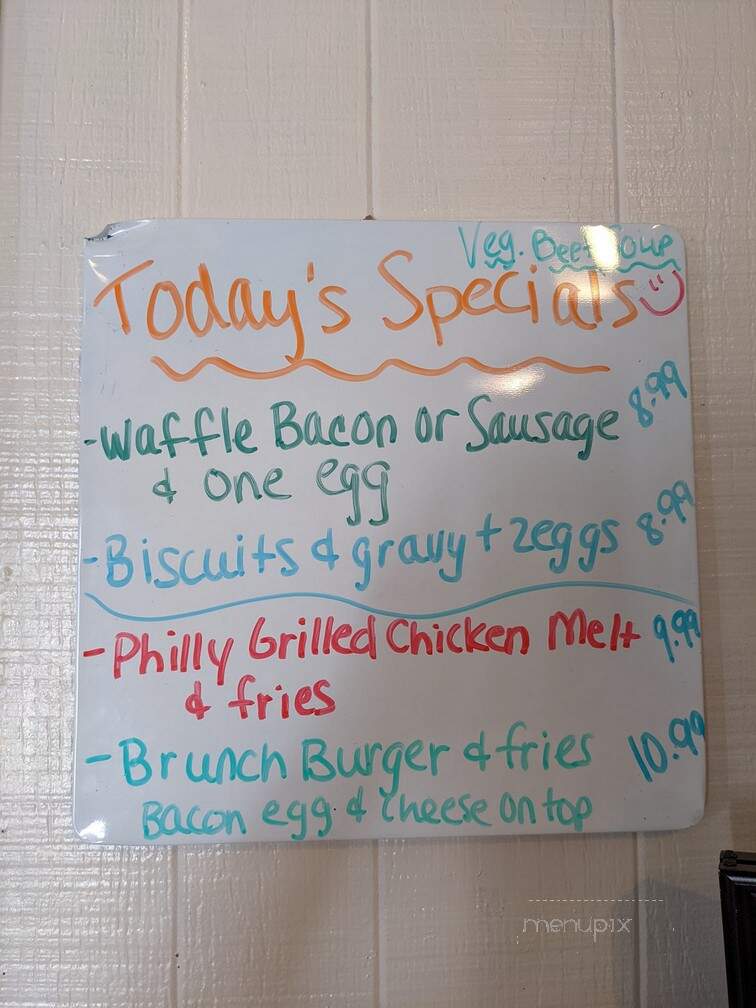 Veg. Beef Soup
Today's Specials
-Waffle Bacon or Sausage 8.99
& one egg
-Biscuits & gravy + 2eggs 8.99
-Philly Grilled Chicken Melt 9.99
& fries
-Brunch Burger & fries 10.99
Bacon egg & cheese on top
menupix